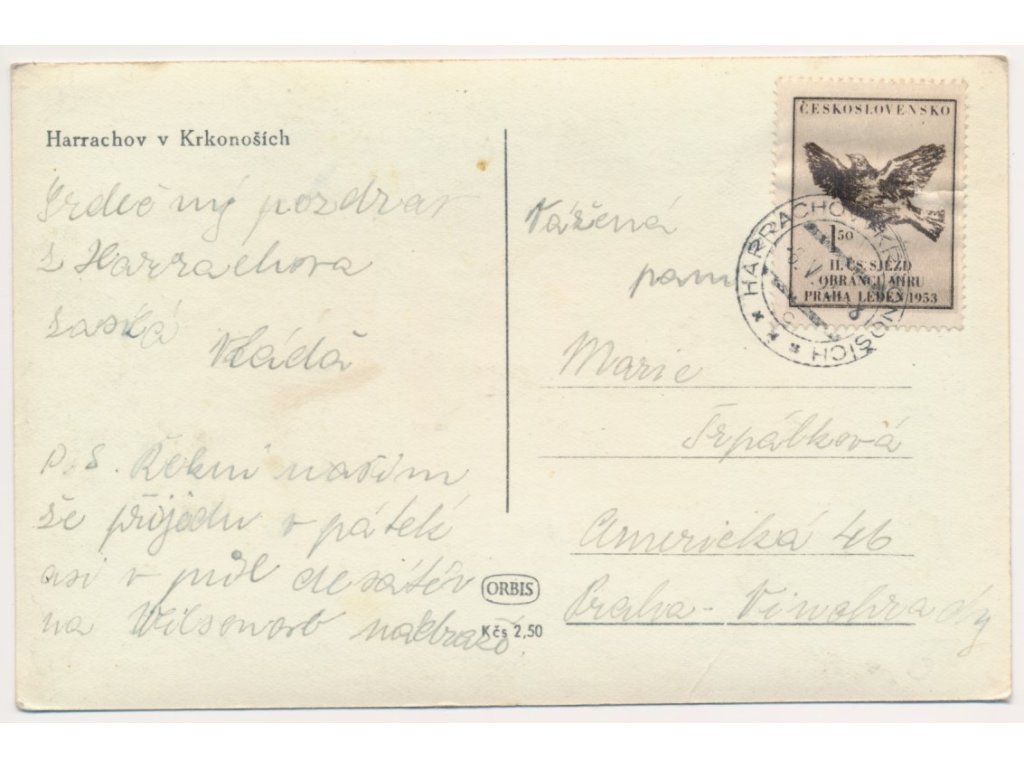 Harrachov v Krkonoších
Srdečný pozdrav
z Harrachova
zasílá
Vláďa
P.S. Řekni našim
že přijedu v pátek
asi v půl desáté v
na Wilsonovo nádraží.
ORBIS
Kčs 2,50
ČESKOSLOVENSKO
1 50
II. ČS. SJEZD
OBRÁNCŮ MÍRU
PRAHA LEDEN 1953
HARRACHOV V KRKONOŠÍCH
Vážená
paní
Marie
Trpálková
Americká 46
Praha - Vinohrady